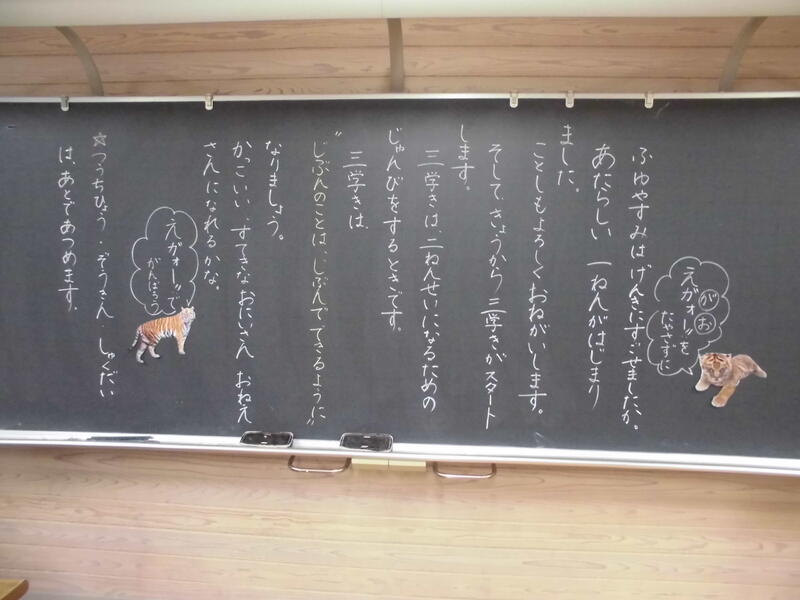 ふゆやすみは げんきにすごせましたか。
あたらしい 一ねんがはじまり
ました。
ことしもよろしくおねがいします。
そして、きょうから 三学きが スタート
します。
三学きは、二ねんせいになるための
じゅんびをするときです。
三学きは、
"じぶんのことは、じぶんでできるように"
なりましょう。
かっこいい、すてきなおにいさん おねえ
さんになれるかな。
☆つうちひょう・ぞうさん・しゅくだい
は、あとであつめます。
がお
えガォー!!を
たやさずに
えガォー!!で
がんばろう